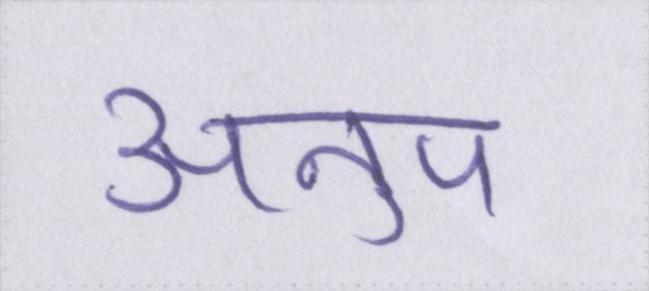 अनुप